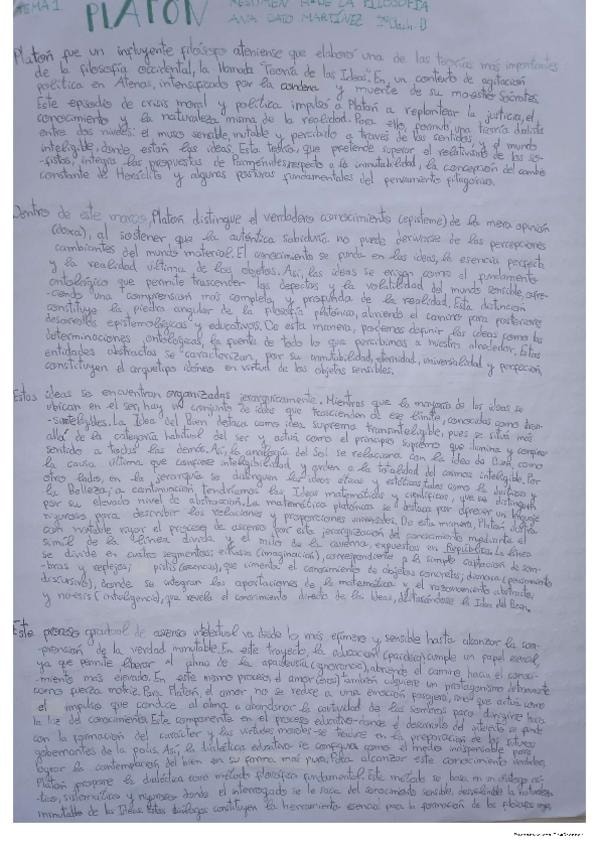 TEMA 1 PLATÓN RESUMEN H. DE LA FILOSOFÍA
ANA GATO MARTÍNEZ 2º Bach-D
Platón fue un influyente filósofo ateniense que elaboró una de las teorías más importantes
de la filosofía occidental, la llamada "Teoría de las Ideas". En un contexto de agitación
política en Atenas, intensificado por la condena y muerte de su maestro Sócrates.
Este episodio de crisis moral y política impulsó a Platón a replantear la justicia, el
conocimiento y la naturaleza misma de la realidad. Para ello, formuló una teoría dualista
entre dos niveles: el mundo sensible, mutable y percibido a través de los sentidos, y el mundo
inteligible, donde están las ideas. Esta teoría, que pretende superar el relativismo de los so-
-fistas, integra las propuestas de Parménides respecto a la inmutabilidad, la concepción del cambio
constante de Heráclito y algunas posturas fundamentales del pensamiento pitagórico.
Dentro de este marco, Platón distingue el verdadero conocimiento (episteme) de la mera opinión
(doxa), al sostener que la auténtica sabiduría no puede derivarse de las percepciones
cambiantes del mundo material. El conocimiento se funda en las ideas, la esencia perfecta
y la realidad última de los objetos. Así, las ideas se erigen como el fundamento
ontológico que permite trascender los defectos y la volatilidad del mundo sensible, ofre-
-ciendo una comprensión más completa y profunda de la realidad. Esta distinción
constituye la piedra angular de la filosofía platónica, abriendo el camino para posteriores
desarrollos epistemológicos y educativos. De esta manera, podemos definir las ideas como las
determinaciones ontológicas, la fuente de todo lo que percibimos a nuestro alrededor. Estas
entidades abstractas se caracterizan por su inmutabilidad, eternidad, universalidad y perfección,
constituyen el arquetipo idóneo en virtud de los objetos sensibles.
Estas ideas se encuentran organizadas jerárquicamente. Mientras que la mayoría de las ideas se
ubican en el ser, hay un conjunto de ideas que trascienden de ese límite, conocidas como tran-
-sinteligibles. La Idea del Bien destaca como idea suprema transinteligible, pues se sitúa más
allá de la categoría habitual del ser y actúa como el principio supremo que ilumina y confiere
sentido a todas las demás. Así, la analogía del Sol se relaciona con la idea de Bien, como
la causa última que confiere inteligibilidad y orden a la totalidad del cosmos inteligible. Por
otro lado, en la jerarquía se distinguen las ideas éticas y estéticas, tales como la Justicia y
la Belleza; a continuación tendríamos las Ideas matemáticas y científicas, que se distinguen
por su elevado nivel de abstracción. La matemática platónica se destaca por ofrecer un lenguaje
riguroso para describir las relaciones y proporciones universales. De esta manera, Platón
con notable rigor el proceso de ascenso por esta jerarquización del conocimiento mediante el
símil de la línea dividida y el mito de la caverna, expuestos en República. La línea
se divide en cuatro segmentos: eikasia (imaginación), correspondiente a la simple captación de som-
-bras y reflejos; pistis (creencia), que cimenta el conocimiento de objetos concretos; dianoia (pensamiento
discursivo), donde se integran las aportaciones de la matemática y el razonamiento abstracto;
y noesis (inteligencia), que revela el conocimiento directo de las Ideas, destacándose la Idea del Bien.
Este proceso gradual de ascenso intelectual va desde lo más efímero y sensible hasta alcanzar la com-
-prensión de la verdad inmutable. En este trayecto, la educación (paideia) cumple un papel esencial,
ya que permite liberar al alma de la apaideusía (ignorancia), abriendo el camino hacia el conoci-
-miento más elevado. En este mismo proceso, el amor (eros) también adquiere un protagonismo
como fuerza motriz. Para Platón, el amor no se reduce a una emoción pasajera, sino que actúa como
el impulso que conduce al alma a abandonar la cautividad de las sombras para dirigirse hacia
la luz del conocimiento. Este componente en el proceso educativo-donde el desarrollo del intelecto se funde
con la formación del carácter y las virtudes morales-se traduce en la preparación de los futuros
gobernantes de la polis. Así, la dialéctica educativa se configura como el medio indispensable para
lograr la contemplación del bien en su forma más pura. Para alcanzar este conocimiento verdadero,
Platón propone la dialéctica como método filosófico fundamental. Este método se basa en un diálogo crí-
-tico, sistemático y riguroso donde el interrogado se le saca del conocimiento sensible, desvelando la naturaleza
inmutable de las Ideas. Estos diálogos constituyen la herramienta esencial para la formación de los filósofos